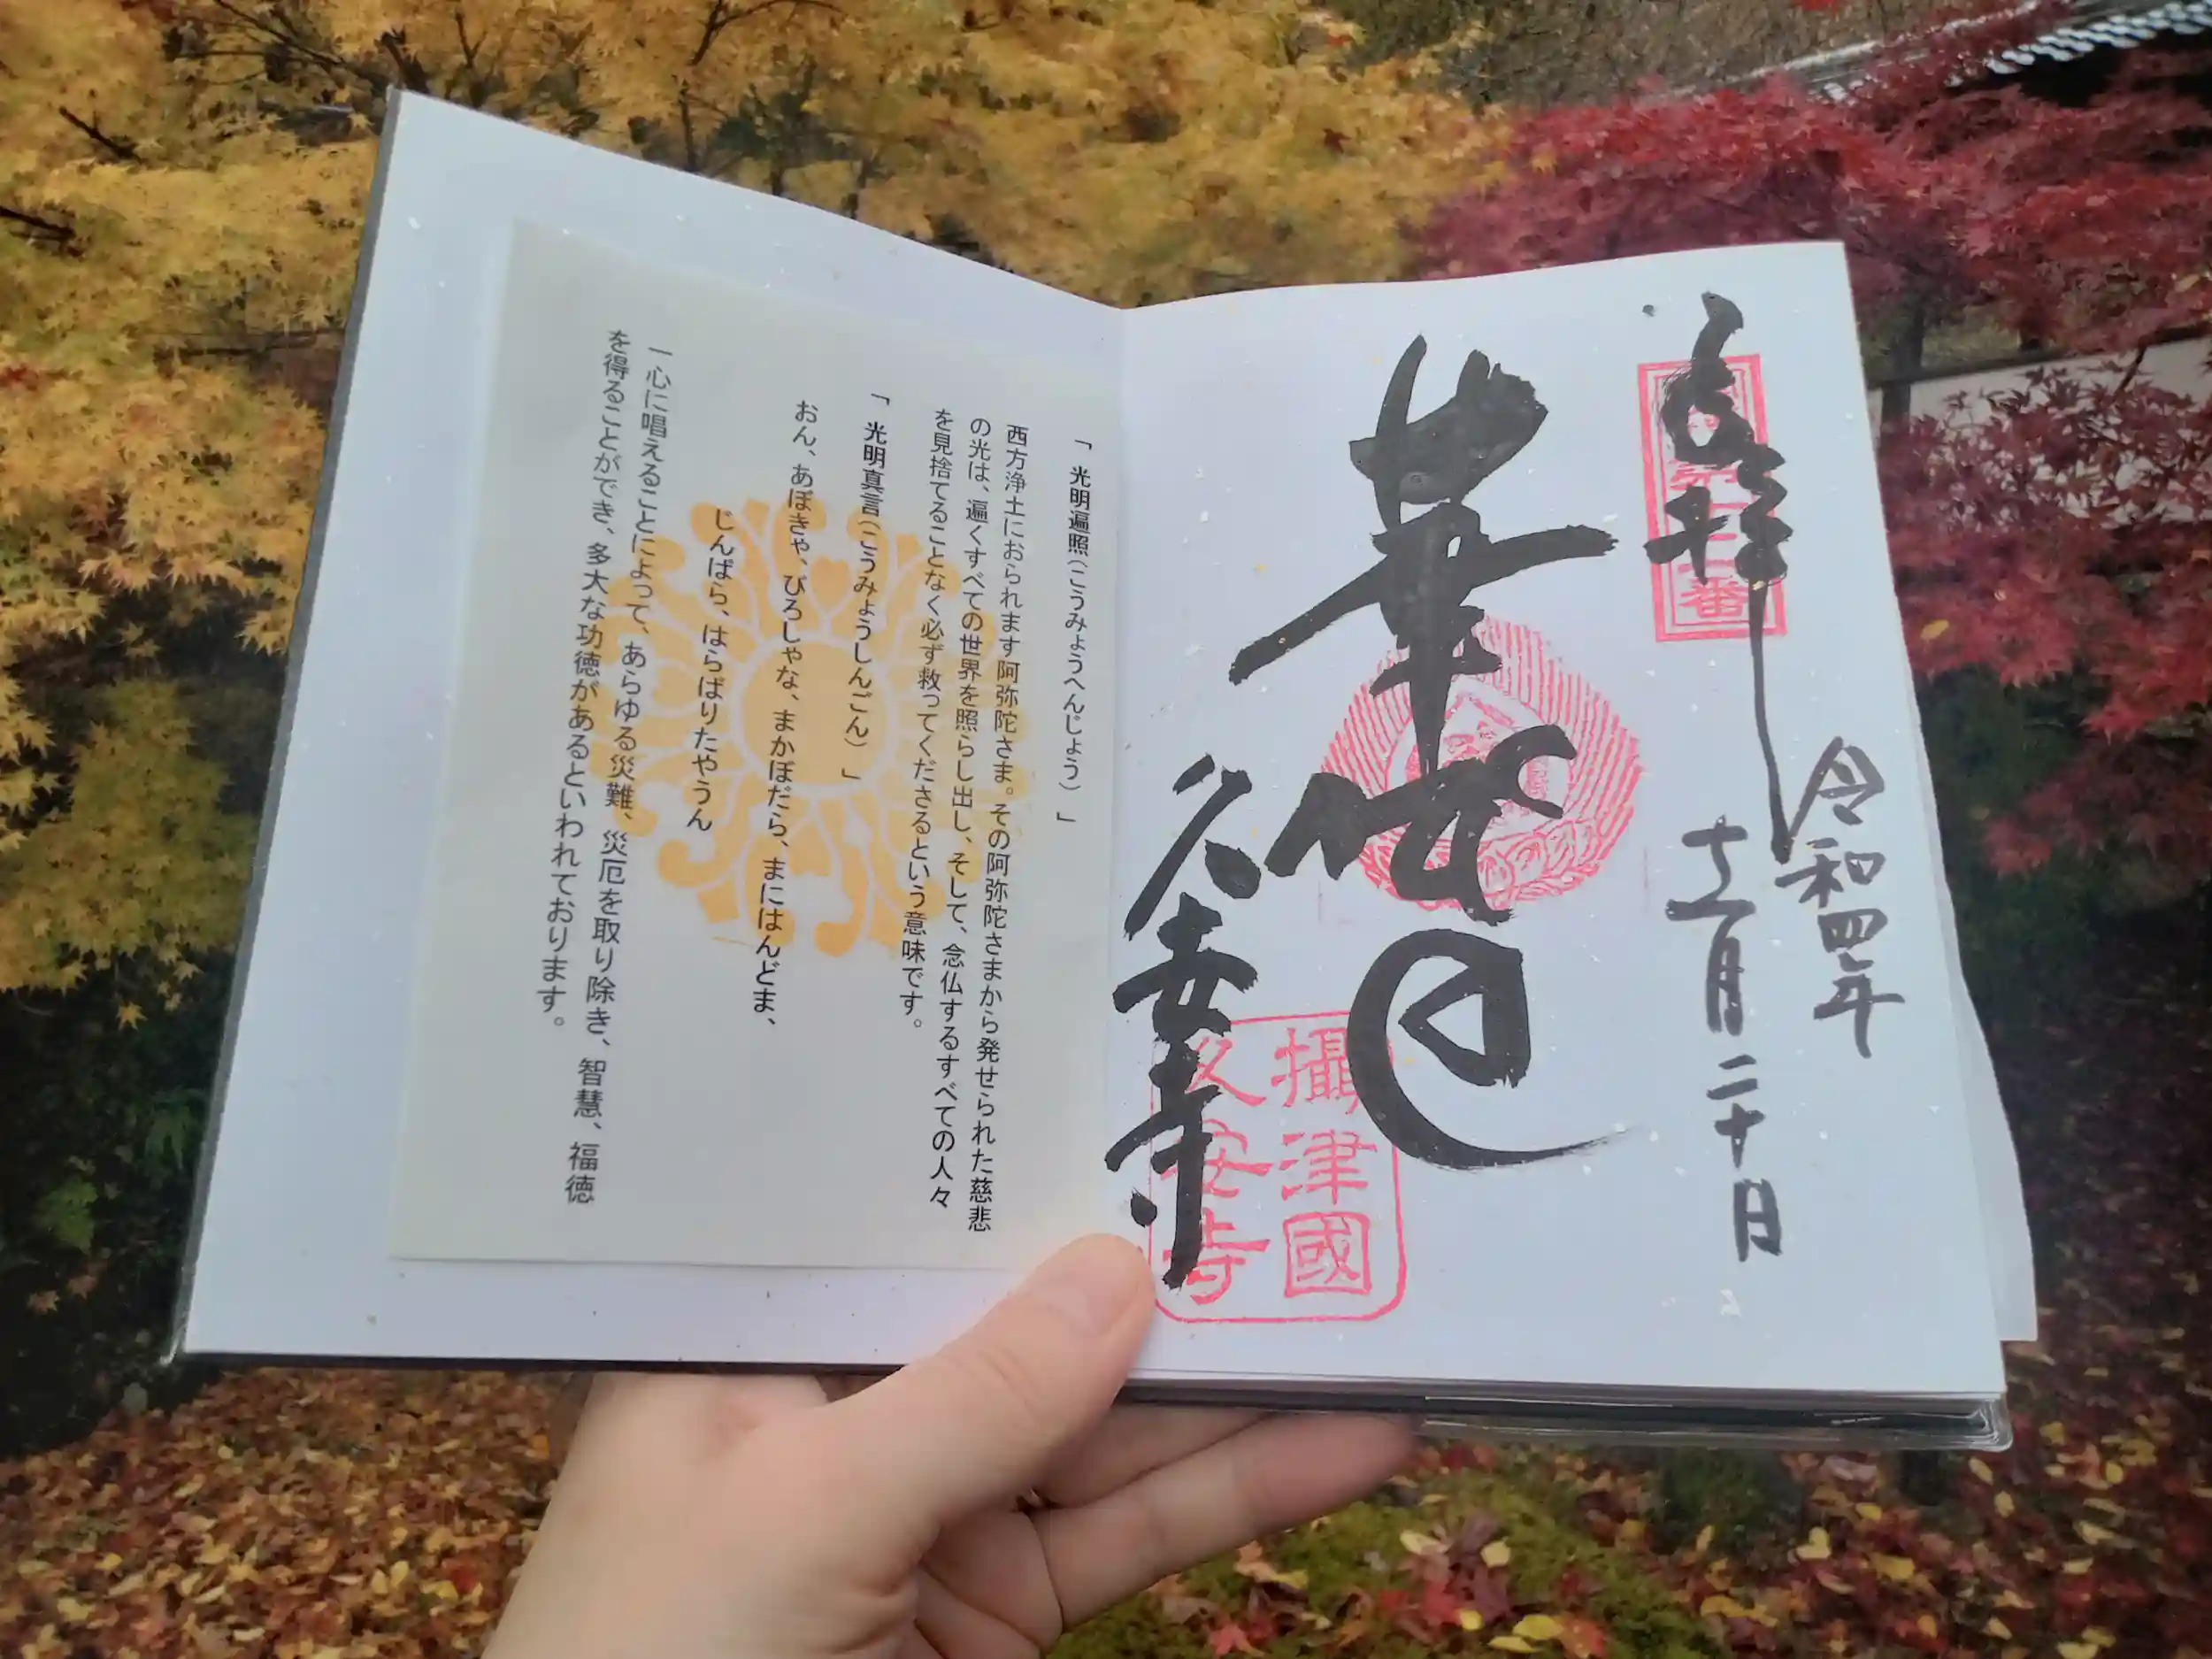 奉拝
令和四年
十一月二十日
番
攝津國
久安寺
久安寺
「光明遍照(こうみょうへんじょう)」
西方浄土におられます阿弥陀さま。その阿弥陀さまから発せられた慈悲
の光は、遍くすべての世界を照らし出し、そして、念仏するすべての人々
を見捨てることなく必ず救ってくださるという意味です。
「光明真言(こうみょうしんごん)」
おん、あぼきゃ、びろしゃな、まかぼだら、まにはんどま、
じんばら、はらばりたやうん
一心に唱えることによって、あらゆる災難、災厄を取り除き、智慧、福徳
を得ることができ、多大な功徳があるといわれております。